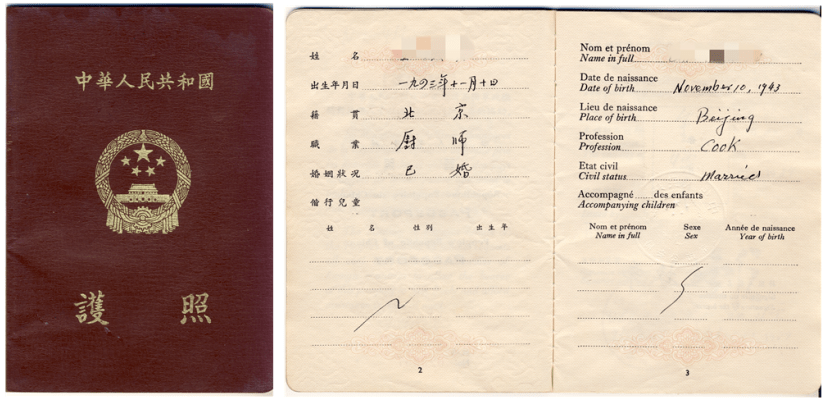 中華人民共和國
護照
姓名
出生年月日 一九四三年十一月十日
籍貫 北京
職業 廚師
婚姻狀況 已婚
偕行兒童
姓名 性別 出生年
2
Nom et prénom
Name in full
Date de naissance
Date of birth November 10, 1943
Lieu de naissance
Place of birth Beijing
Profession
Profession Cook
Etat civil
Civil status Married
Accompagné des enfants
Accompanying children
Nom et prénom Sexe Année de naissance
Name in full Sex Year of birth
3